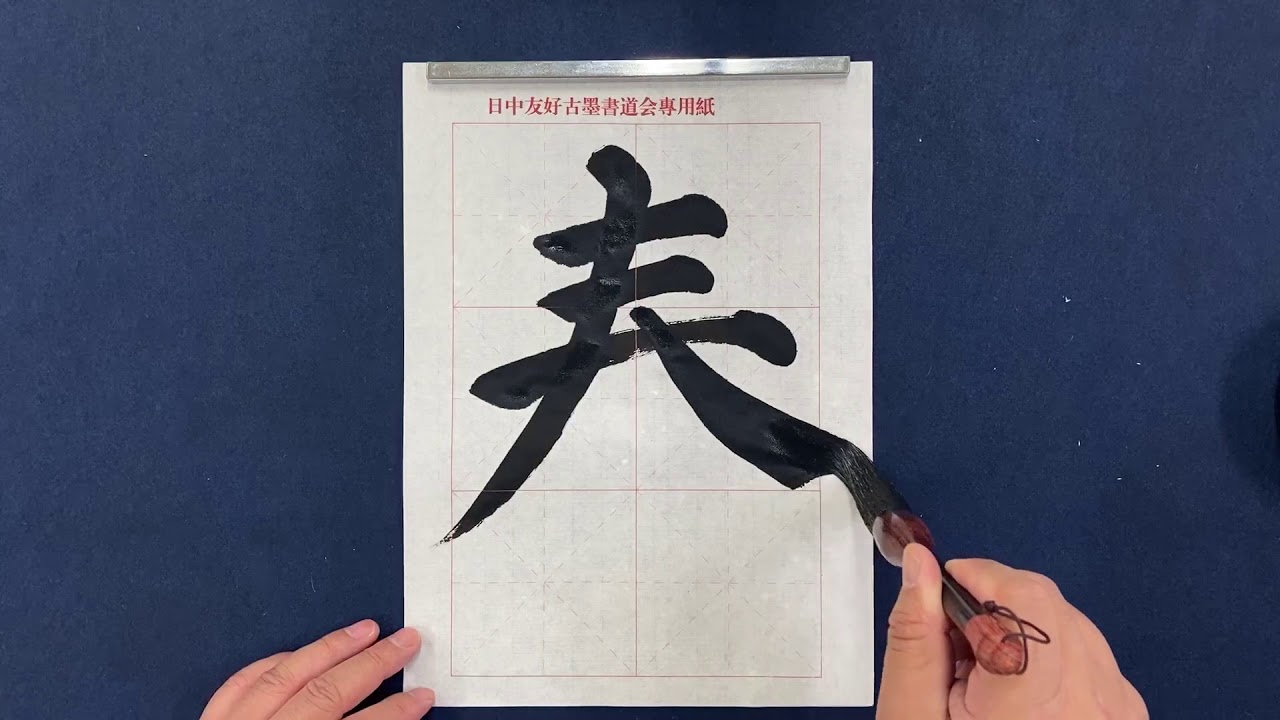 日中友好古墨書道会專用紙
𡗗